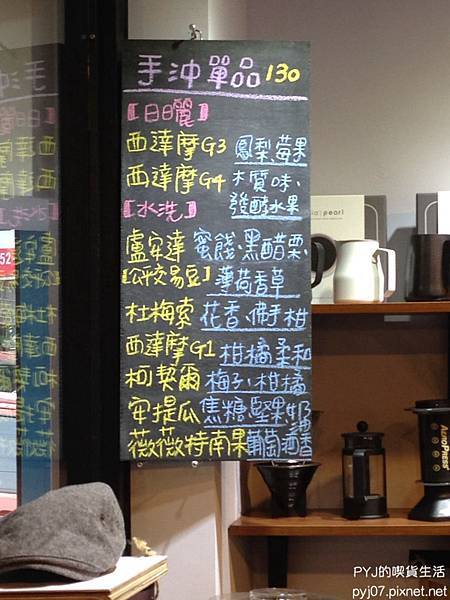 手沖單品 130
【日曬】
西達摩G3 鳳梨莓果
西達摩G4 木質味、
發酵水果
【水洗】
盧安達 蜜餞、黑醋栗、
【公平交易豆】薄荷香草
杜梅索 花香、佛手柑
西達摩G1 柑橘柔和
柯契爾 梅子、柑橘
安提瓜 焦糖堅果奶油
薇薇特南果 葡萄酒香
pearl
AEROPRESS
52
PYJ的喫貨生活
pyj07.pixnet.net